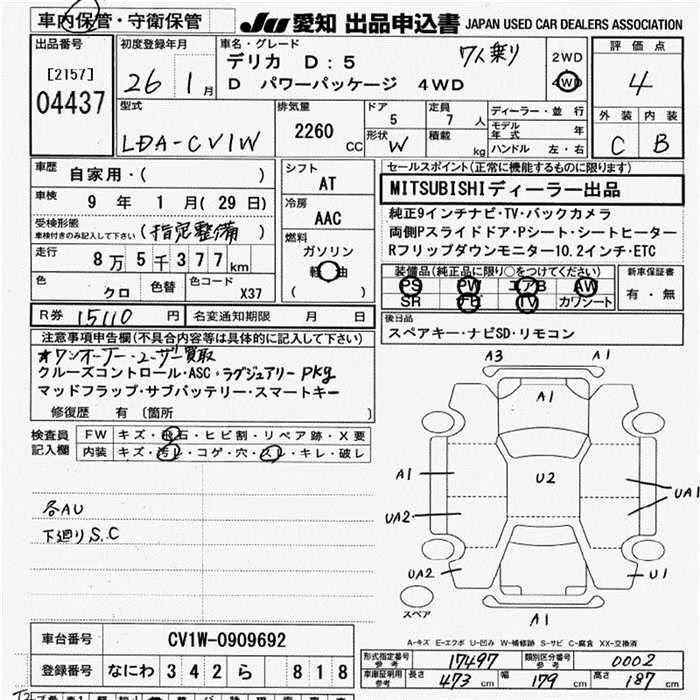 車内保管・守衛保管
JU 愛知 出品申込書 JAPAN USED CAR DEALERS ASSOCIATION
出品番号
[2157]
04437
初度登録年月
26 1月
車名・グレード
7人乗り
デリカ D:5
D パワーパッケージ 4WD
2WD
4WD
評価点
4
外装 内装
C B
型式
LDA-CV1W
排気量
2260 CC
ドア
5
形状 W
定員
7 人
積載 kg
ディーラー・並行
モデル年式 年
ハンドル 左・右
車歴
自家用・( )
車検
9 年 1 月(29 日)
受検形態
車検付きのみ記入して下さい
(指定整備)
走行
8万5千377km
色
クロ
色替
色コード
X37
シフト
AT
冷房
AAC
燃料
ガソリン
軽油
( )
セールスポイント(正常に機能するものに限ります)
MITSUBISHIディーラー出品
純正9インチナビ・TV・バックカメラ
両側Pスライドドア・Pシート・シートヒーター
Rフリップダウンモニター10.2インチ・ETC
装備品(純正品に限り○をつけてください)
PS PW エアB AW
SR ナビ TV カワシート
新車保証書
有・無
R券 15110 円
名変通知期限 月 日
後日品
スペアキー・ナビSD・リモコン
注意事項申告欄(不具合内容等は具体的に記入して下さい)
★ワンオーナー・ユーザー買取
クルーズコントロール・ASC・ラグジュアリーPKg
マッドフラップ・サブバッテリー・スマートキー
修復歴 有 (箇所 )
検査員
記入欄
FW キズ・飛石・ヒビ割・リペア跡・X要
内装 キズ・汚レ・コゲ・穴・スレ・キレ・破レ
各AU
下廻りS.C
A3 A1
A1
A1 U2 UA1
UA2
UA2 U1
A1
スペア
A-キズ E-エクボ U-凹み W-補修跡 S-サビ C-腐食 XX-交換済
車台番号 CV1W-0909692
登録番号 なにわ 342 ら 818
形式指定番号 参考 17497
類別区分番号 参考 0002
車庫証明用 参考 長さ 473 cm 幅 179 cm 高さ 187 cm